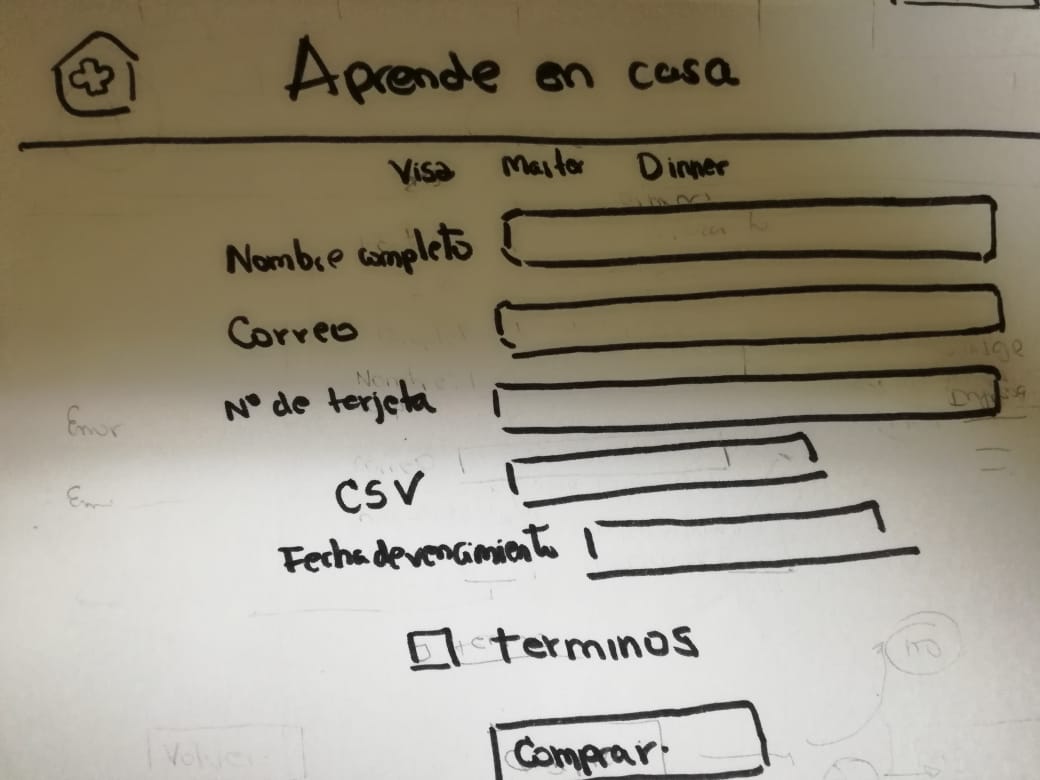 Aprende en casa
Visa Master Dinner
Nombre completo
Correo
Nº de terjeta
CSV
Fecha de vencimiento
terminos
Comprar.
Volver